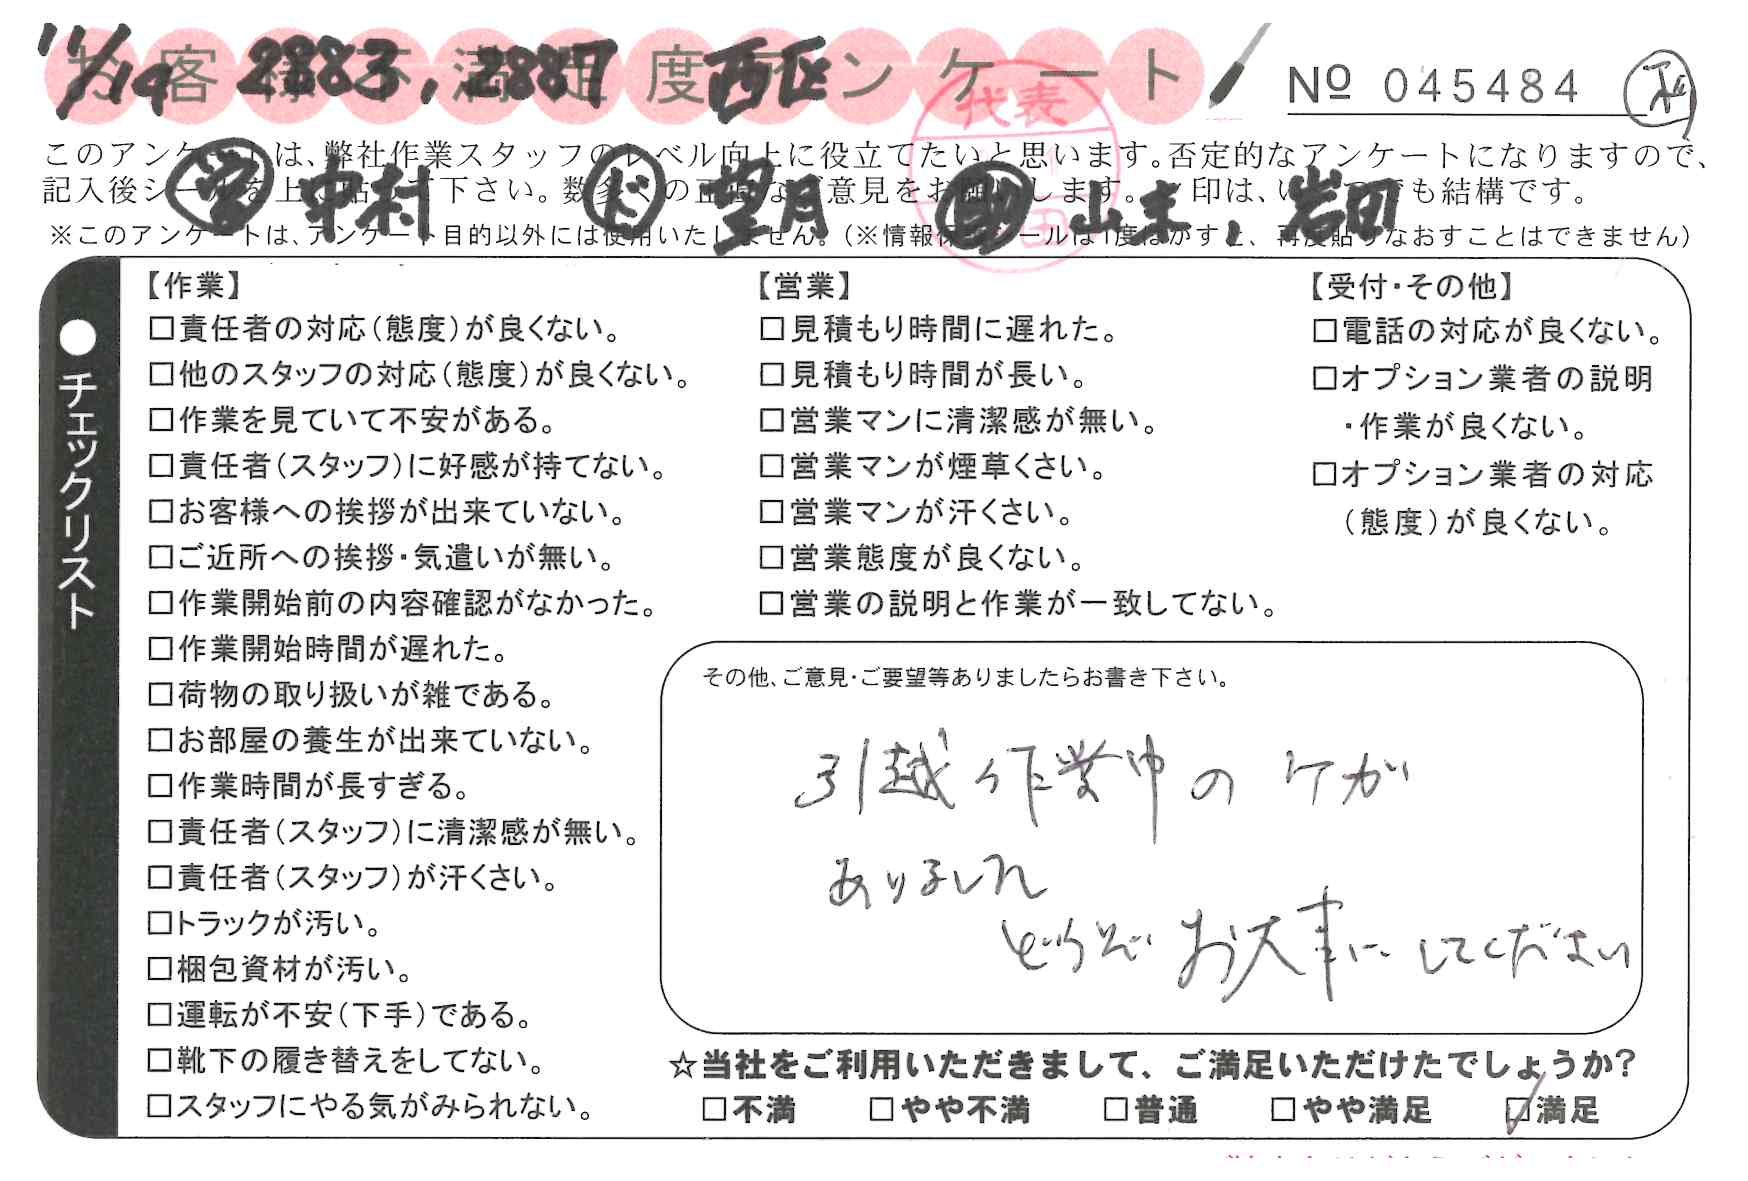 お客様不満足度アンケート
11/14 2883, 2887 西区
№ 045484
このアンケートは、弊社作業スタッフのレベル向上に役立てたいと思います。否定的なアンケートになりますので、
記入後シールを上に貼って下さい。数多くの正直なご意見をお願いします。✓印は、いくつでも結構です。
中村 ド 望月 山末, 岩田
代表
※このアンケートは、アンケート目的以外には使用いたしません。(※情報保護シールは1度はがすと、再度貼りなおすことはできません)
●チェックリスト
【作業】
□責任者の対応(態度)が良くない。
□他のスタッフの対応(態度)が良くない。
□作業を見ていて不安がある。
□責任者(スタッフ)に好感が持てない。
□お客様への挨拶が出来ていない。
□ご近所への挨拶・気遣いが無い。
□作業開始前の内容確認がなかった。
□作業開始時間が遅れた。
□荷物の取り扱いが雑である。
□お部屋の養生が出来ていない。
□作業時間が長すぎる。
□責任者(スタッフ)に清潔感が無い。
□責任者(スタッフ)が汗くさい。
□トラックが汚い。
□梱包資材が汚い。
□運転が不安(下手)である。
□靴下の履き替えをしてない。
□スタッフにやる気がみられない。
【営業】
□見積もり時間に遅れた。
□見積もり時間が長い。
□営業マンに清潔感が無い。
□営業マンが煙草くさい。
□営業マンが汗くさい。
□営業態度が良くない。
□営業の説明と作業が一致してない。
【受付・その他】
□電話の対応が良くない。
□オプション業者の説明
・作業が良くない。
□オプション業者の対応
(態度)が良くない。
その他、ご意見・ご要望等ありましたらお書き下さい。
引越作業中のケガ
ありました
どうぞ お大事に してください
☆当社をご利用いただきまして、ご満足いただけたでしょうか?
□不満 □やや不満 □普通 □やや満足 ☑満足